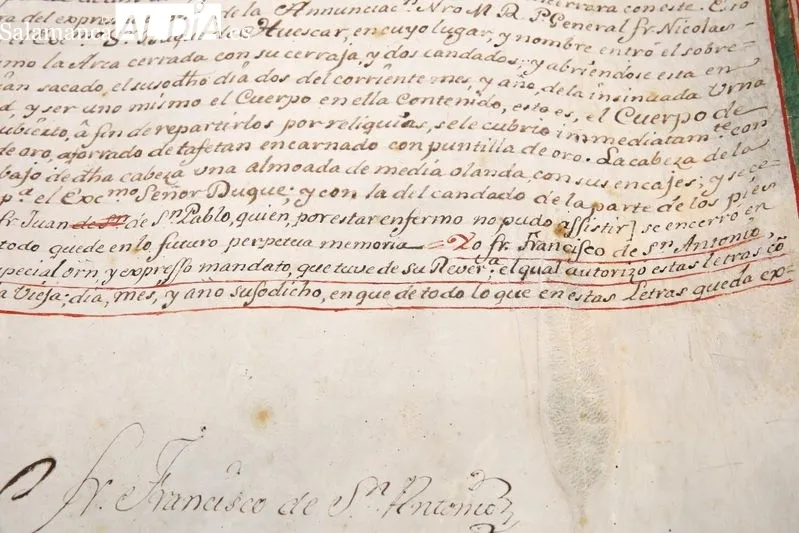 Salamanca AL DÍA.es
del expres de la Annunciac.n Nro M. R. P. General fr. Nicolas
Exc. Duque de Huescar, en cuyo lugar, y nombre entró el sobre-
mo la Arca cerrada con su cerraja, y dos candados; y abriendose esta en
an sacado, el susodho dia dos del corriente mes, y año, de la insinuada Urna
d, y ser uno mismo el Cuerpo en ella Contenido, esto es, el Cuerpo de
ubierto, â fin de repartirlos por reliquias, se le cubrio immediatam.te con
de oro, aforrado de tafetan encarnado con puntilla de oro. La cabeza de la
bajo de dha cabeza una almoada de media olanda, con sus encajes; y se ce-
p.a el Exc.mo Señor Duque; y con la del candado de la parte de los pies
fr. Juan de S.n Pablo, quien, por estar enfermo no pudo assistir] se encerró en
todo quede en lo futuro perpetua memoria = Yo fr. Francisco de S.n Antonio,
special orn, y expresso mandato, que tuve de su Rever.a, el qual autorizo estas letras cō
a Vieja; dia, mes, y año susodicho, en que de todo lo que en estas Letras queda ex-
fr. Francisco de S.n Antonio